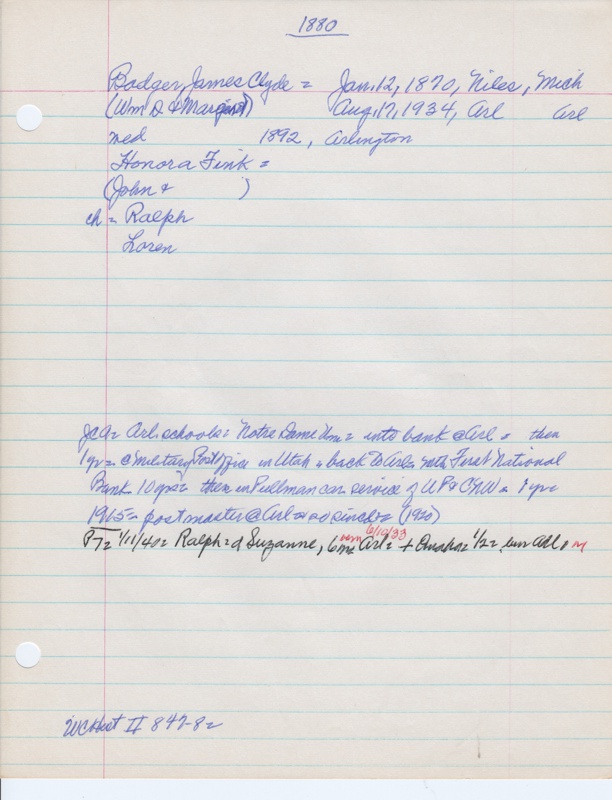 1880
Badger, James Clyde = Jan. 12, 1870, Niles, Mich
(Wm D & Margaret) Aug. 17, 1934, Arl Arl
med 1892, Arlington
Honora Fink =
(John & )
ch = Ralph
Loren
Arl. schools = Notre Dame Un = into bank @ Arl = then
1 yr = @ military Post Office in Utah = back to Arl = with First National
Bank 10 yrs = then in Pullman car service of UP & CNW = 1 yr =
1915 = postmaster @ Arl = so since = (1920)
6/10/33
1/11/40 = Ralph = d Suzanne, 6 m = Arl = + Omaha = 1/2 =
WC Hist II 847-8 =